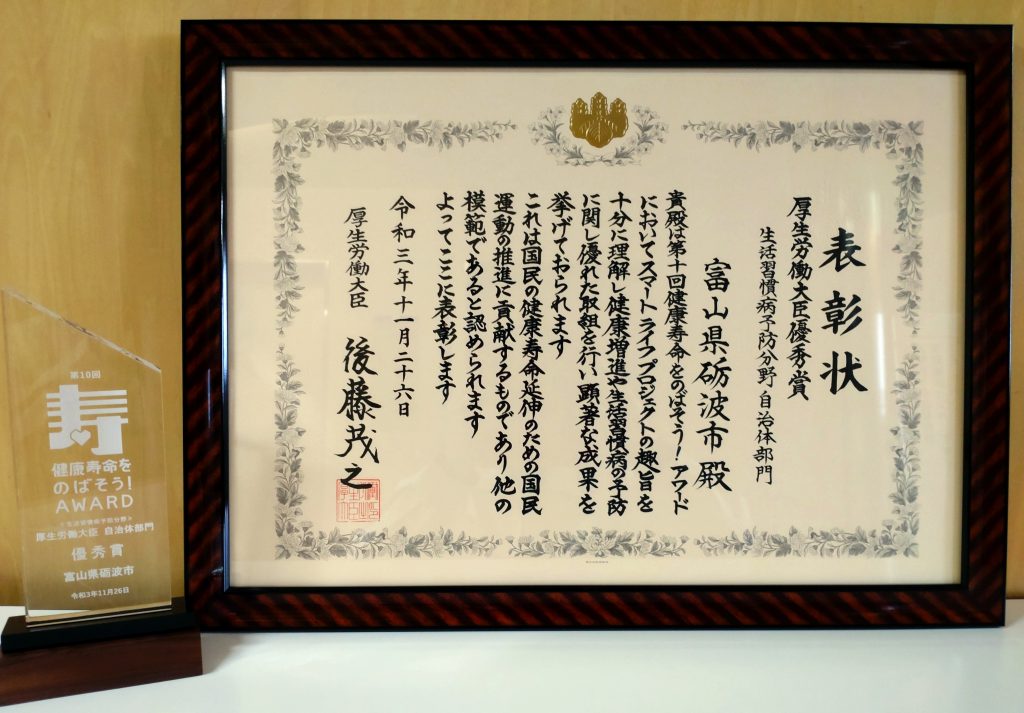 表彰状
厚生労働大臣優秀賞
生活習慣病予防分野・自治体部門
富山県砺波市殿
貴殿は第十回健康寿命をのばそう！アワード
においてスマートライフプロジェクトの趣旨を
十分に理解し健康増進や生活習慣病の予防
に関し優れた取組を行い顕著な成果を
挙げておられます
これは国民の健康寿命延伸のための国民
運動の推進に貢献するものであり他の
模範であると認められます
よってここに表彰します
令和三年十一月二十六日
厚生労働大臣 後藤茂之
第10回
寿
健康寿命を
のばそう!
AWARD
<生活習慣病予防分野>
厚生労働大臣 自治体部門
優秀賞
富山県砺波市
令和3年11月26日